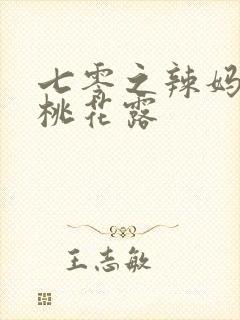 七零之辣妈
桃花露
王志敏